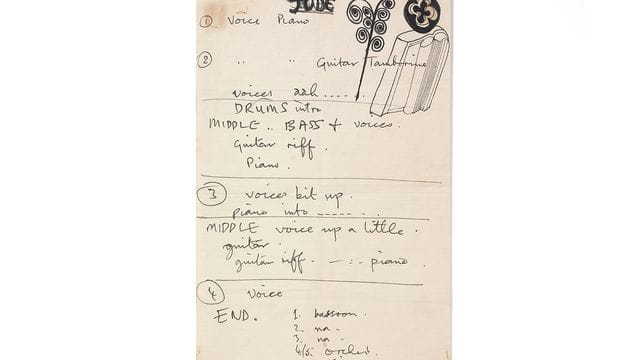 JUDE
① Voice Piano
② " " Guitar Tamborine
voices aah.....
DRUMS intro
MIDDLE.. BASS + voices.
Guitar riff.
Piano.
③ voices bit up.
piano into ------.
MIDDLE voice up a little.
guitar.
guitar riff. —:- piano.
④ Voice
END.
1. bassoon.
2. na -
3. na -
4/5.